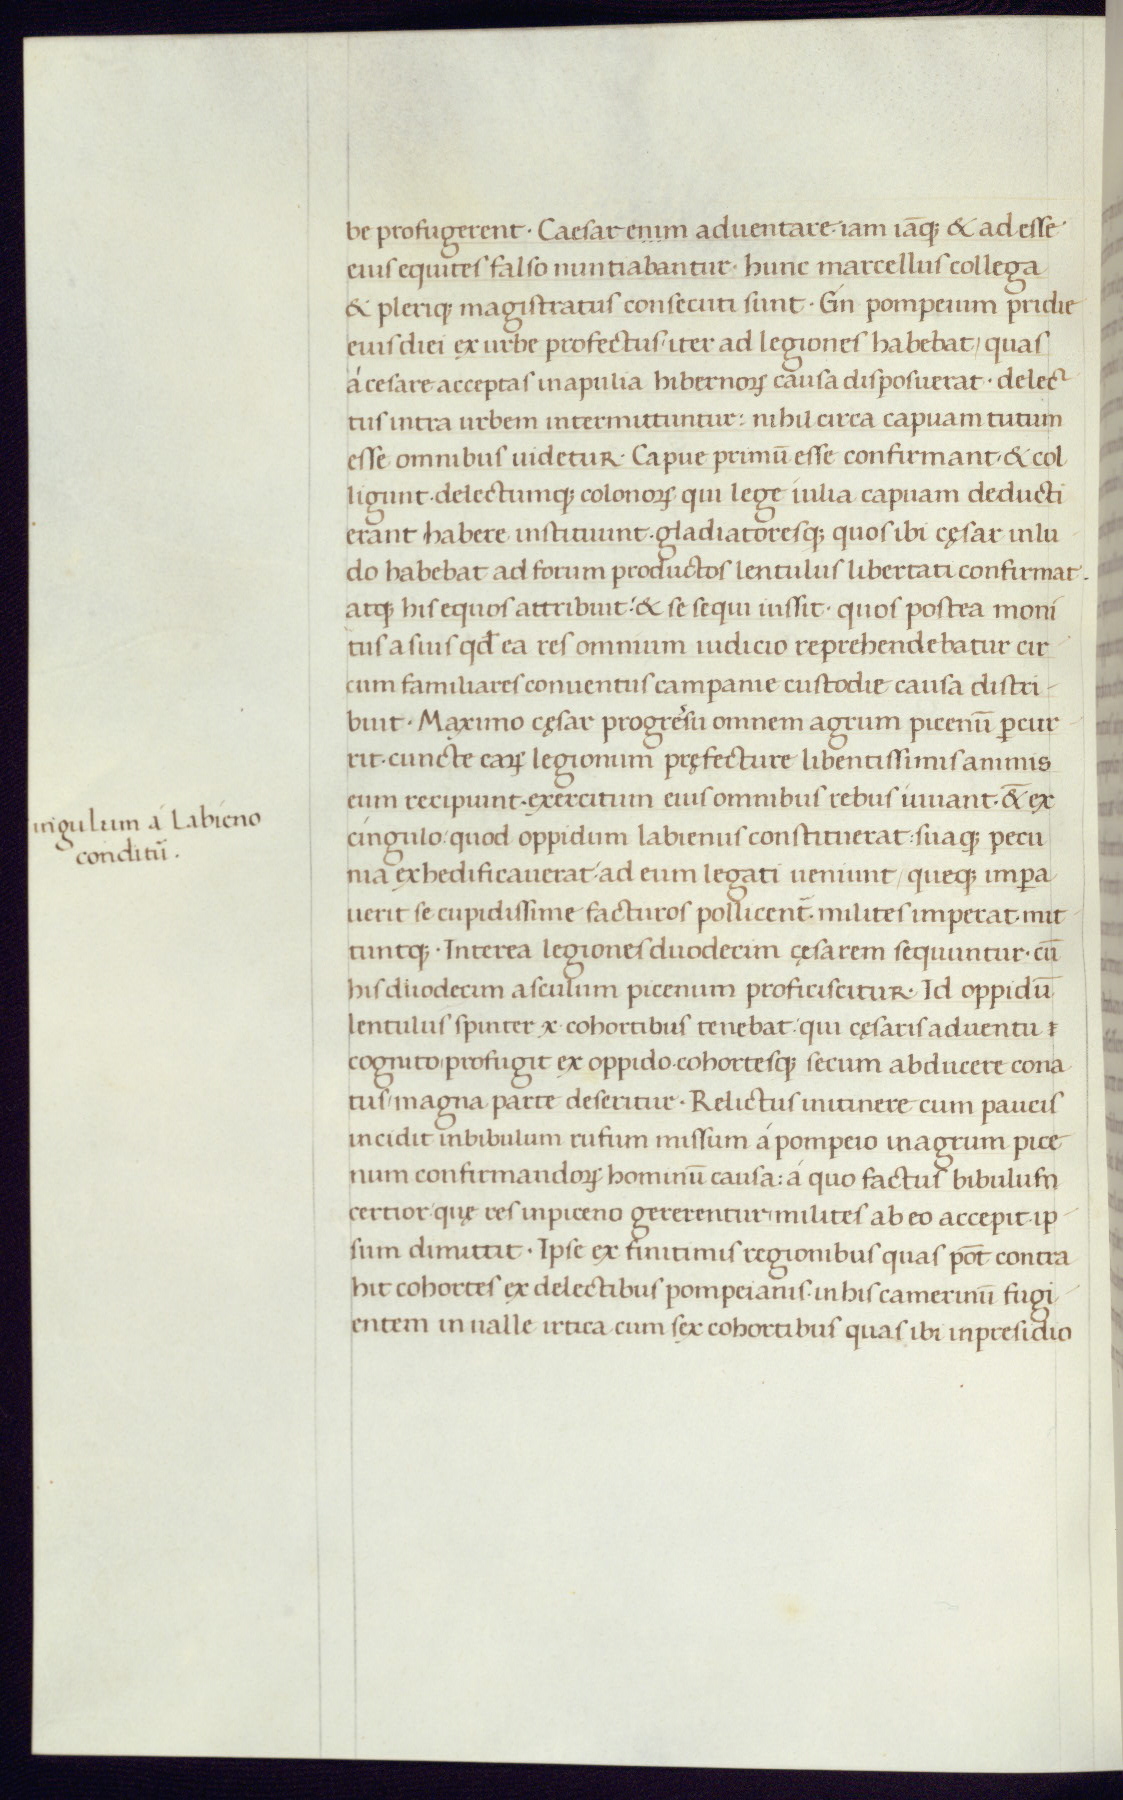 be profugerent · Caesar enim aduentare · iam iāq; & ad esse
eius equites falso nuntiabantur · hunc marcellus collega
& pleriq; magistratus consecuti sunt · Gn pompeium pridie
eius diei ex urbe profectus / iter ad legiones habebat / quas
á cesare acceptas in apulia hibernoꝝ causa disposuerat · delec
tus intra urbem intermittuntur : nihil circa capuam tutum
esse omnibus uidetur · Capue primū esse confirmant · & col
ligunt · delectumq; colonoꝝ qui lege iulia capuam deducti
erant habere instituunt · gladiatoresq; quos ibi cęsar in lu
do habebat ad forum productos lentulus libertati confirmat ·
atq; his equos attribuit : & se sequi iussit · quos postea moni
tus a suis qđ ea res omnium iudicio reprehendebatur cir
cum familiares conuentus campanie custodie causa distri
buit · Maximo cęsar progressu omnem agrum picenū ꝑcur
rit · cuncte eaꝝ legionum pręfecture libentissimis animis
eum recipiunt · exercitum eius omnibus rebus iuuant · & ex
cingulo / quod oppidum labienus constituerat : suaq; pecu
nia exhedificauerat / ad eum legati ueniunt / queq; imꝑa
uerit se cupidissime facturos pollicent̄ · milites imperat · mit
tuntq; · Interea legiones duodecim cęsarem sequuntur · cū
his duodecim asculum picenum proficiscitur · Id oppidū
lentulus spinter x cohortibus tenebat · qui cęsaris aduentu
cognito / profugit ex oppido · cohortesq; secum abducere cona
tus / magna parte deseritur · Relictus in itinere cum paucis
incidit in bibulum rufum missum á pompeio in agrum pice
num confirmandoꝝ hominū causa : á quo factus bibulus
certior · quę res in piceno gererentur / milites ab eo accepit · ip
sum dimittit · Ipse ex finitimis regionibus quas pōt contra
hit cohortes ex delectibus pompeianis · in his camerinū fugi
entem in ualle irtica cum sex cohortibus quas ibi in presidio
ingulum á Labieno
conditū .